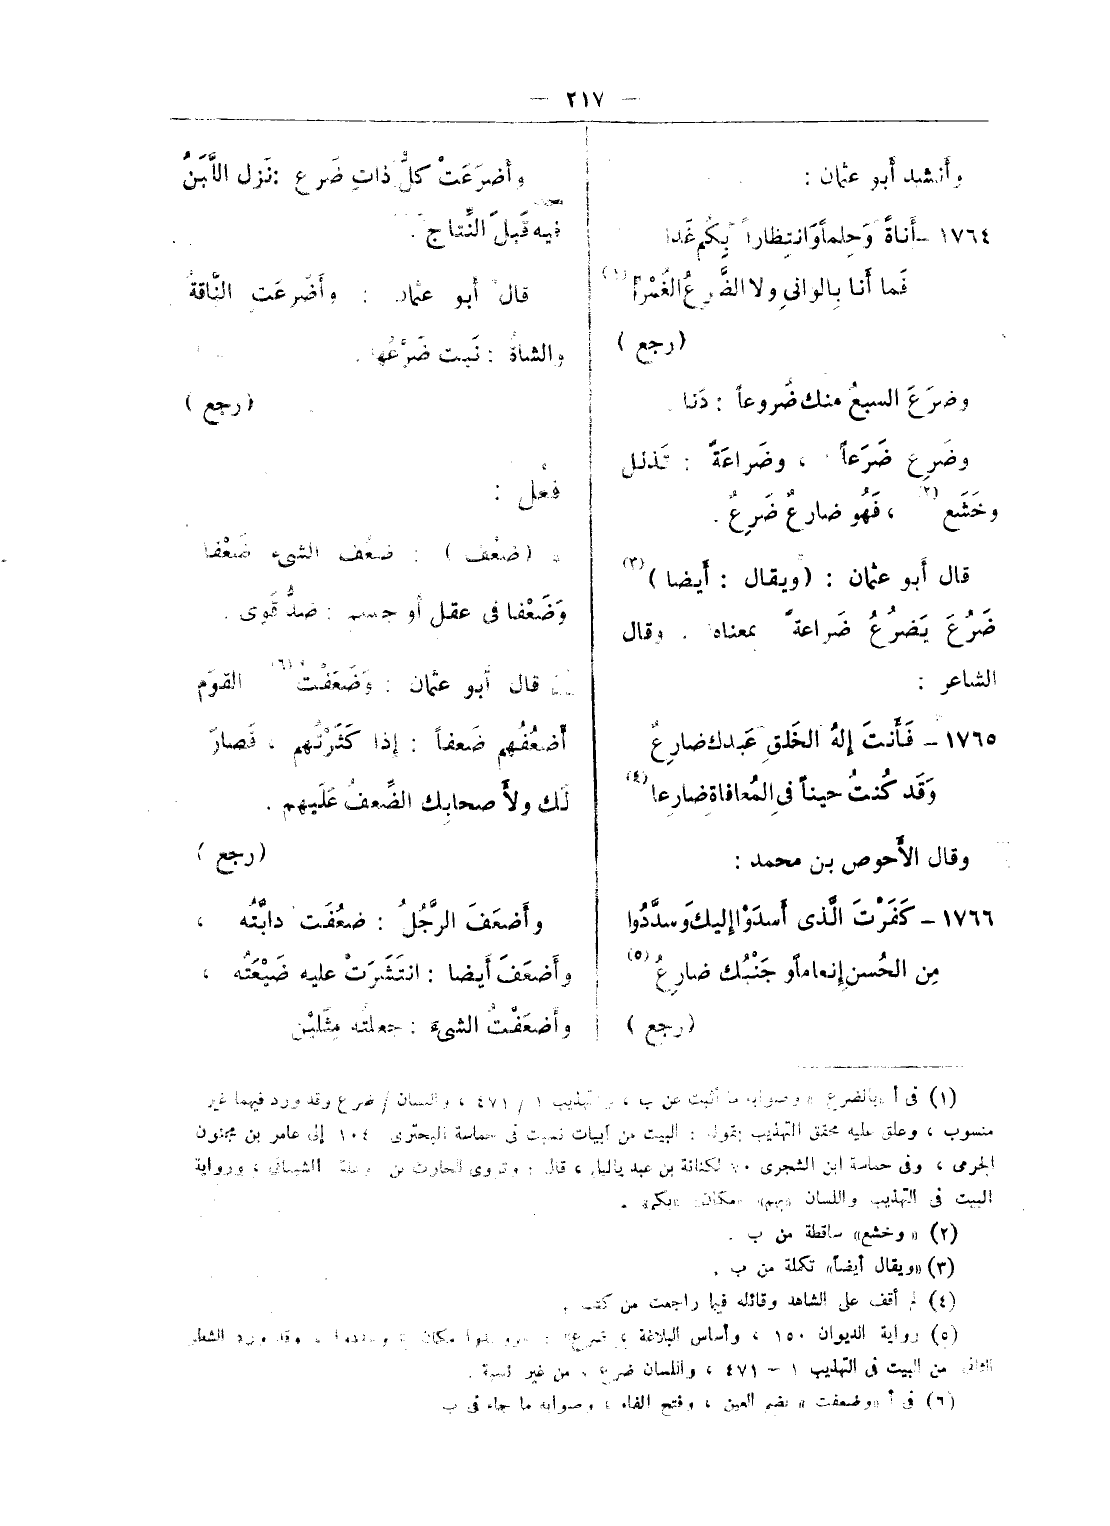 — ٢١٧ —
وأنشد أبو عثمان :
١٧٦٤ – أناةً وَحِلماً وَانتِظاراً بِكُم غَدا
فَما أنا بِالوانِى ولا الضَّرعُ الغَمْرُ (١)
( رجع )
وضرَعَ السبعُ منك ضُروعاً : دَنا .
وضَرِع ضَرَعاً ، وضَراعَةً : تَذلل
وخَشَع (٢) ، فَهُو ضارعٌ ضَرِعٌ .
قال أبو عثمان : ( ويقال : أيضا ) (٣)
ضَرُعَ يَضرُعُ ضَراعةً بمعناه . وقال
الشاعر :
١٧٦٥ – فَأَنتَ إِلهُ الخَلقِ عَبدك ضارِعٌ
وَقَد كُنتُ حيناً فى المُعافاةِ ضارِعا (٤)
وقال الأَحوص بن محمد :
١٧٦٦ – كَفَرْتَ الَّذى أسدَوْا إليك وَسدَّدُوا
مِن الحُسنِ إنعاماً وَجَنْبُك ضارِعُ (٥)
( رجع )
وأضرَعَتْ كلُّ ذاتِ ضَرعٍ : نَزل اللَّبَنُ
فيه قَبلَ النِّتاج .
قال أبو عثمان : وأَضرعَتِ النَّاقةُ
والشاةُ : نَبت ضَرْعُها .
( رجع )
فعُل :
( ضعُف ) : ضعُف الشىء ضَعْفا
وَضَعْفا فى عقل أو جسم : ضدُّ قَوِى .
قال أبو عثمان : وَضَعَفْت (٦) القوَم
أَضعُفُهم ضَعفاً : إذا كَثَرْتَهم ، فَصارَ
لَك ولأَصحابِك الضَّعفُ عَلَيهم .
( رجع )
وأَضعَفَ الرَّجُلُ : ضعُفَت دابَّتُه ،
وأَضعَفَ أيضا : انتَشَرَتْ عليه ضَيْعَتُه ،
وأَضعَفْتُ الشىءَ : جعلتُه مِثَليْن
(١) فى أ «بالضرع » وصوابه ما أثبت عن ب ، والتهذيب ١ / ٤٧١ ، واللسان / ضرع وقد ورد فيهما غير
منسوب ، وعلق عليه محقق التهذيب بقوله : البيت من أبيات نسبت فى حماسة البحترى ١٠٤ إلى عامر بن مجنون
الجرمى ، وفى حماسة ابن الشجرى ٧٠ لكنانة بن عبد ياليل ، قال : وتروى للحارث بن وعلة الشيبانى ، ورواية
البيت فى التهذيب واللسان «بهم» مكان «بكم» .
(٢) « وخشع» ساقطة من ب .
(٣) «ويقال أيضاً» تكملة من ب .
(٤) لم أقف على الشاهد وقائله فيما راجعت من كتب .
(٥) رواية الديوان ١٥٠ ، وأساس البلاغة « ضرع» : مكان « وسددوا » ، وقد ورد الشطر
الثانى من البيت فى التهذيب ١ – ٤٧١ ، واللسان ضرع ، من غير نسبة .
(٦) فى أ «وضعفت » بضم العين ، وفتح الفاء ، وصوابه ما جاء فى ب